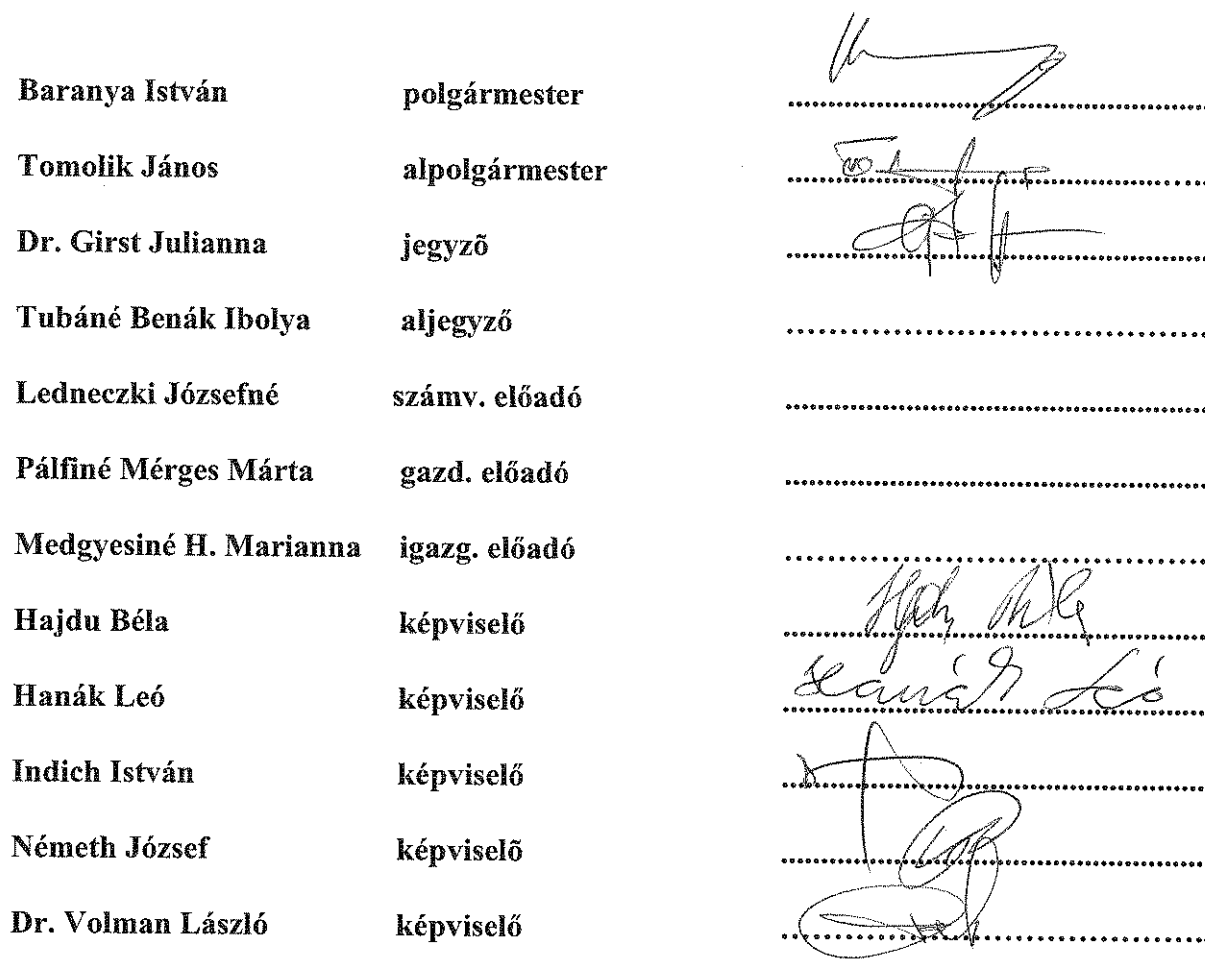 Baranya István polgármester
Tomolik János alpolgármester
Dr. Girst Julianna jegyzõ
Tubáné Benák Ibolya aljegyző
Ledneczki Józsefné számv. előadó
Pálfiné Mérges Márta gazd. előadó
Medgyesiné H. Marianna igazg. előadó
Hajdu Béla képviselő
Hanák Leó képviselő Hanák Leó
Indich István képviselő
Németh József képviselõ
Dr. Volman László képviselő